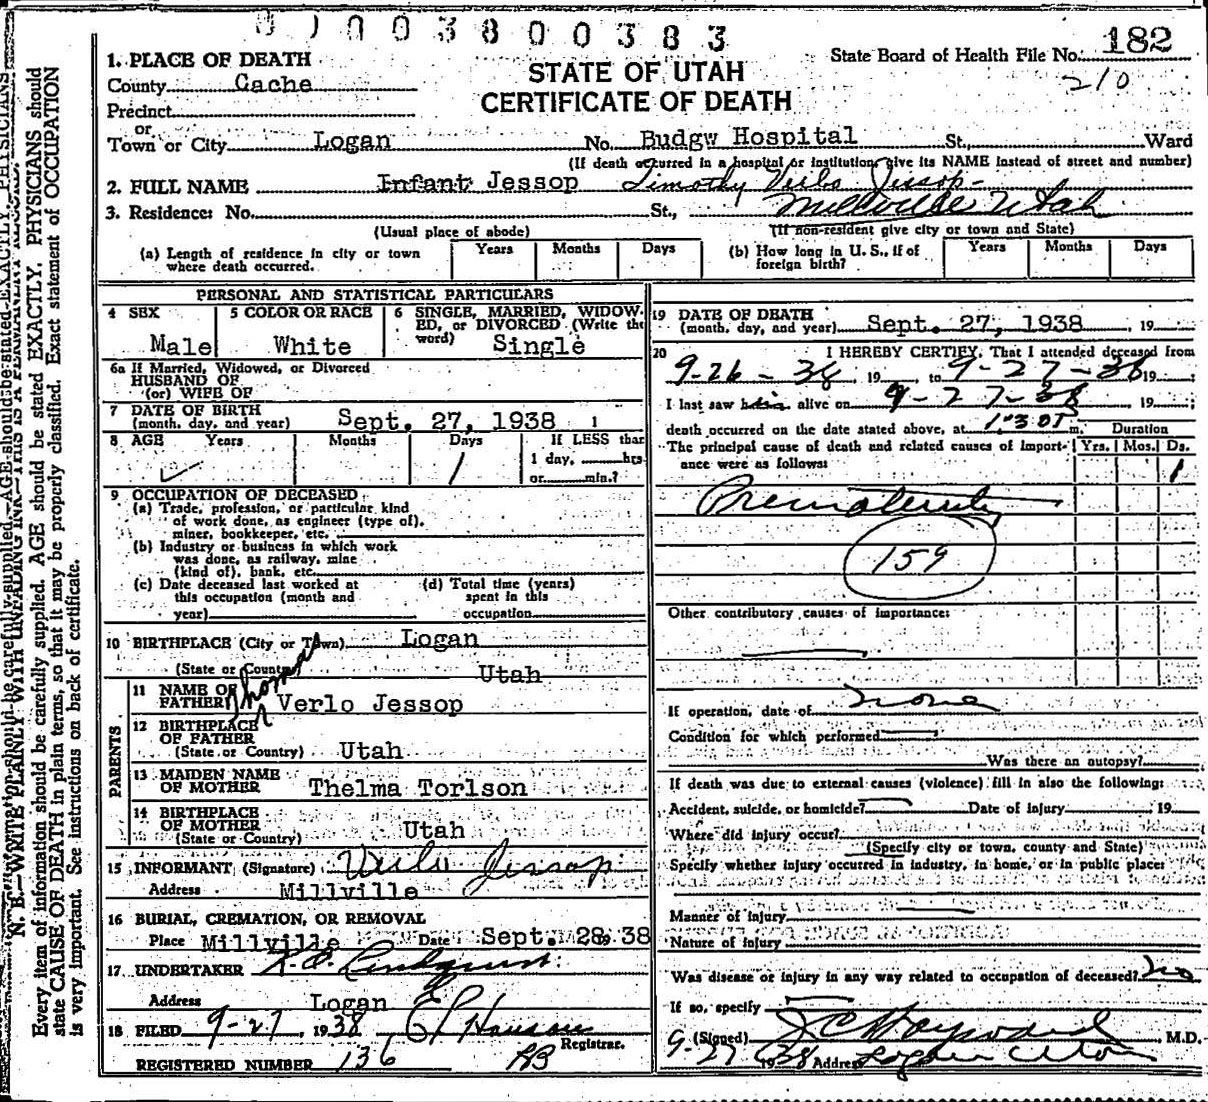 003800383
State Board of Health File No. 182
210
STATE OF UTAH
CERTIFICATE OF DEATH
1. PLACE OF DEATH
County Cache
Precinct
or
Town or City Logan No. Budgw Hospital St., Ward
(If death occurred in a hospital or institution, give its NAME instead of street and number)
2. FULL NAME Infant Jessop Timothy Verlo Jessop
3. Residence: No. St., Millville Utah
(Usual place of abode) (If non-resident give city or town and State)
(a) Length of residence in city or town where death occurred. Years Months Days
(b) How long in U. S., if of foreign birth? Years Months Days
PERSONAL AND STATISTICAL PARTICULARS
4 SEX Male
5 COLOR OR RACE White
6 SINGLE, MARRIED, WIDOWED, or DIVORCED (Write the word) Single
6a If Married, Widowed, or Divorced
HUSBAND OF
(or) WIFE OF
7 DATE OF BIRTH
(month, day, and year) Sept. 27, 1938
8 AGE Years Months Days 1 If LESS than
1 day, hrs.
or min.?
9 OCCUPATION OF DECEASED
(a) Trade, profession, or particular kind
of work done, as engineer (type of),
miner, bookkeeper, etc.
(b) Industry or business in which work
was done, as railway, mine
(kind of), bank, etc.
(c) Date deceased last worked at
this occupation (month and
year)
(d) Total time (years)
spent in this
occupation
10 BIRTHPLACE (City or Town) Logan
(State or Country) Utah
PARENTS
11 NAME OF FATHER Thomas Verlo Jessop
12 BIRTHPLACE OF FATHER
(State or Country) Utah
13 MAIDEN NAME OF MOTHER Thelma Torlson
14 BIRTHPLACE OF MOTHER
(State or Country) Utah
15 INFORMANT (Signature) Verlo Jessop
Address Millville
16 BURIAL, CREMATION, OR REMOVAL
Place Millville Date Sept. 28, 38
17 UNDERTAKER
Address Logan
18 FILED 9-27, 1938
Registrar.
REGISTERED NUMBER 136
19 DATE OF DEATH
(month, day, and year) Sept. 27, 1938, 19
20 I HEREBY CERTIFY, That I attended deceased from
9-26-38, 19 to 9-27-38 19
I last saw him alive on 9-27-38, 19
death occurred on the date stated above, at m. Duration
The principal cause of death and related causes of importance were as follows: Yrs. Mos. Ds.
1
Prematurity
159
Other contributory causes of importance:
If operation, date of none
Condition for which performed
Was there an autopsy?
If death was due to external causes (violence) fill in also the following:
Accident, suicide, or homicide? Date of injury 19
Where did injury occur?
(Specify city or town, county and State)
Specify whether injury occurred in industry, in home, or in public place:
Manner of injury
Nature of injury
Was disease or injury in any way related to occupation of deceased? no
If so, specify
(Signed) J C Hayward M.D.
9-27 1938 Address Logan Utah
N. B.—WRITE PLAINLY WITH UNFADING INK—THIS IS A PERMANENT RECORD.
Every item of information should be carefully supplied. AGE should be stated EXACTLY. PHYSICIANS should
state CAUSE OF DEATH in plain terms, so that it may be properly classified. Exact statement of OCCUPATION
is very important. See instructions on back of certificate.